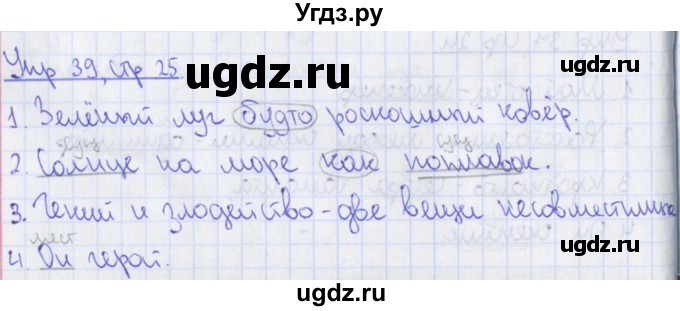 Угдз.ру
Упр 39, стр 25
ugdz.ru
1. Зелёный луг будто роскошный ковёр.
сущ сущ
2. Солнце на море как поплавок.
3. Гений и злодейство - две вещи несовместные
мест
4. Он герой.
ugdz.ru
ugdz.ru